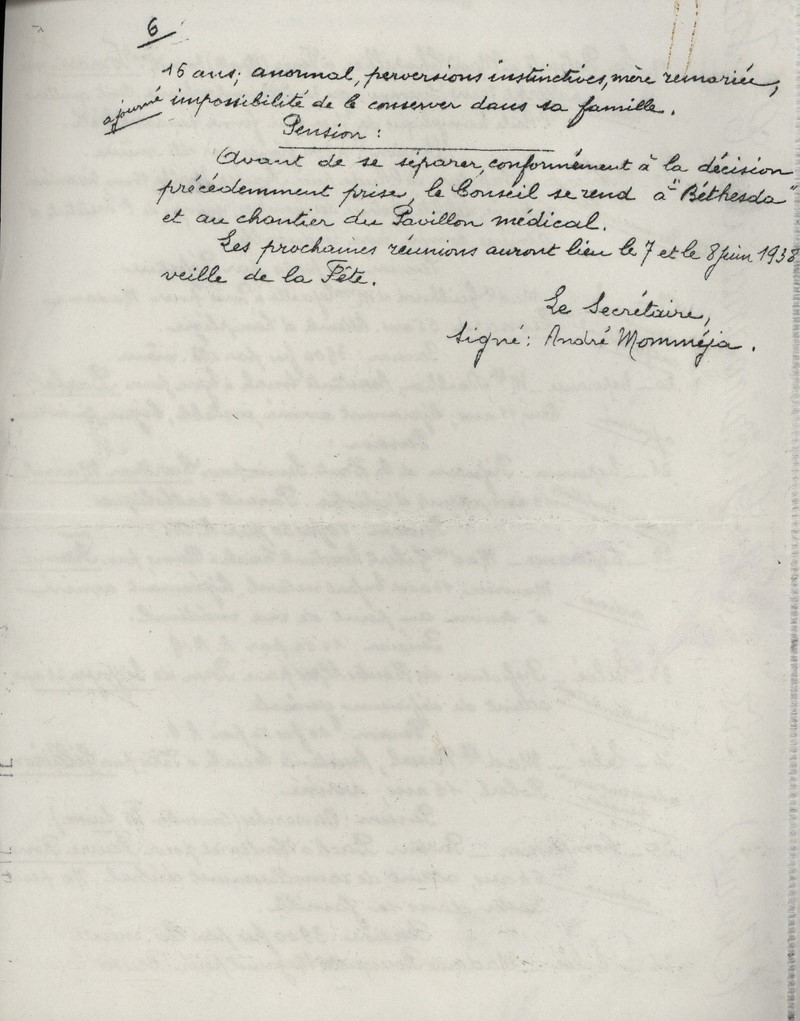 6
15 ans, anormal, perversions instinctives, mère remariée,
ajourné impossibilité de le conserver dans sa famille.
Pension :
Avant de se séparer, conformément à la décision
précédemment prise, le Conseil se rend à "Béthesda"
et au chantier du Pavillon médical.
Les prochaines réunions auront lieu le 7 et le 8 juin 1938
veille de la Fête.
Le Secrétaire,
Signé : André Momméja.